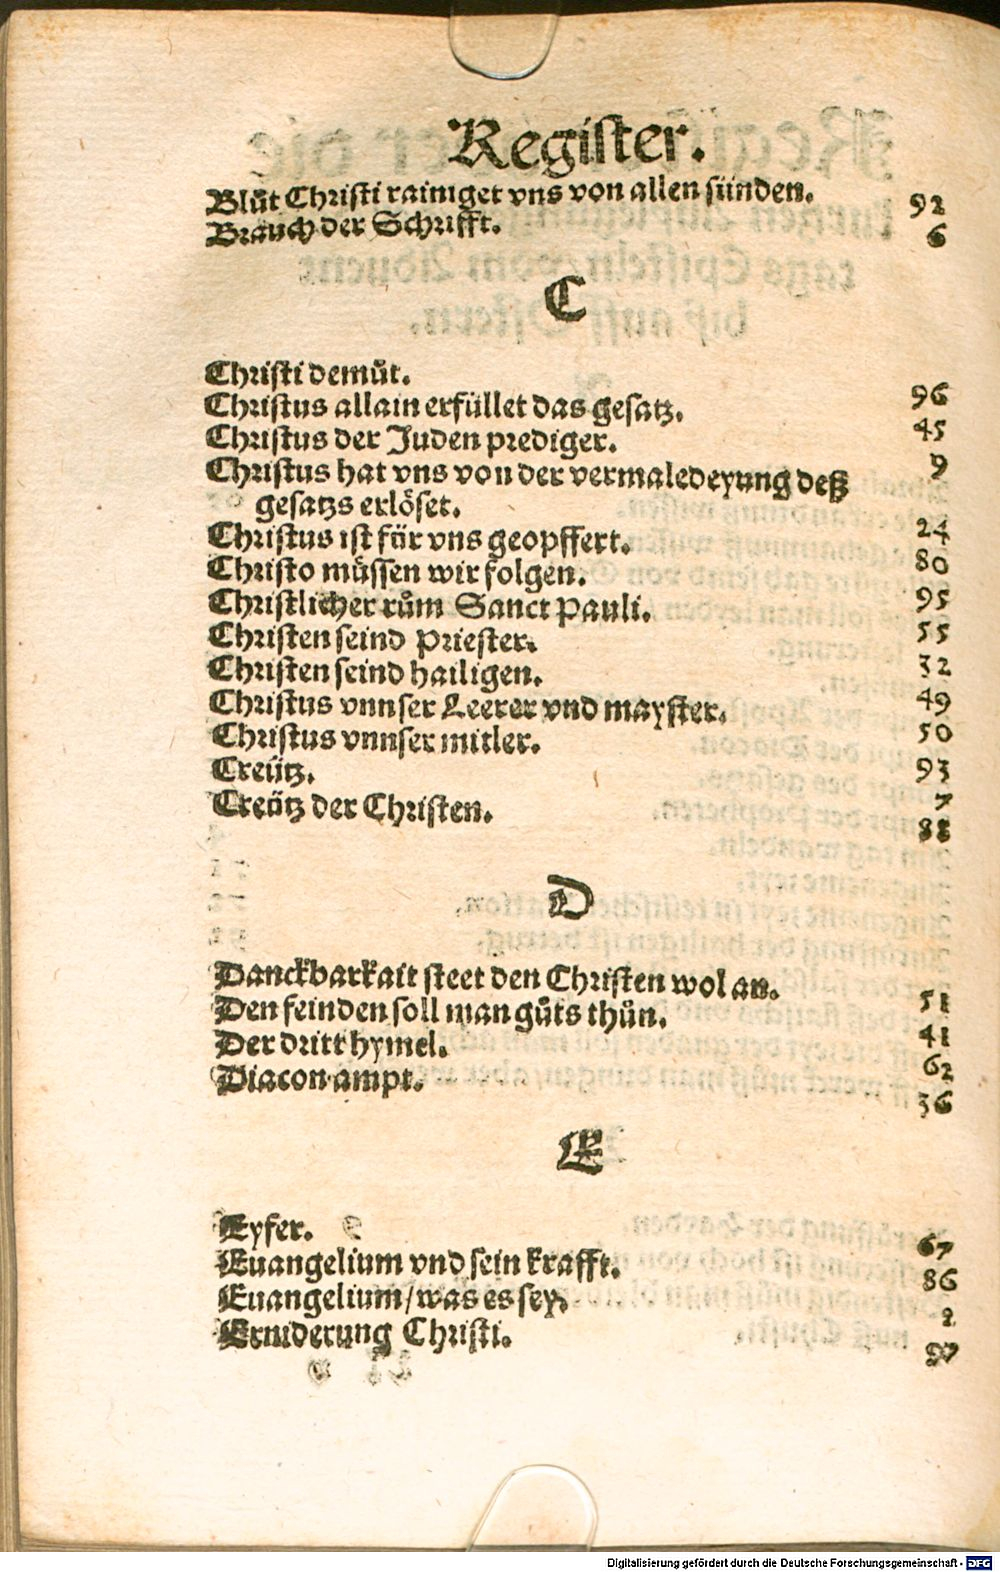 Register.
Blůt Christi rainiget vns von allen sünden. 92
Brauch der Schrifft. 6
C
Christi demůt. 96
Christus allain erfüllet das gesatz. 45
Christus der Juden prediger. 9
Christus hat vns von der vermaledeyung deß
gesatzs erlöset. 24
Christus ist für vns geopffert. 80
Christo müssen wir folgen. 95
Christlicher rům Sanct Pauli. 55
Christen seind Priester. 32
Christen seind hailigen. 49
Christus vnnser Leerer vnd mayster. 50
Christus vnnser mitler. 93
Creütz. 7
Creütz der Christen. 88
D
Danckbarkait steet den Christen wol an. 51
Den feinden soll man gůts thůn. 41
Der dritt hymel. 62
Diacon ampt. 36
E
Eyfer. 67
Euangelium vnd sein krafft. 86
Euangelium/was es sey. 2
Erniderung Christi. 97
Digitalisierung gefördert durch die Deutsche Forschungsgemeinschaft - DFG